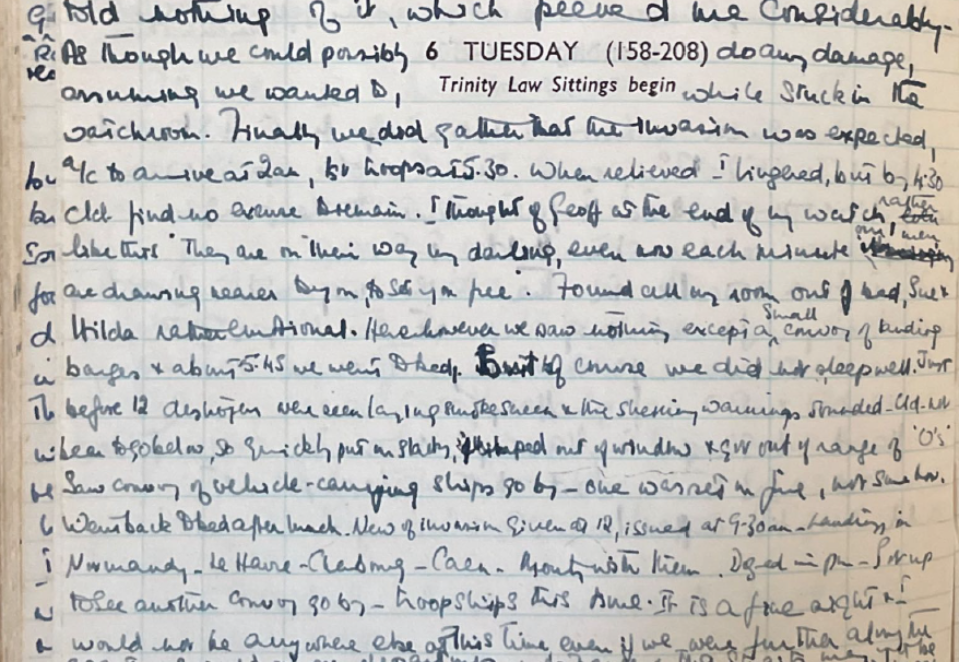 told nothing of it, which peeved me considerably.
As though we could possibly 6 TUESDAY (158-208) do any damage,
assuming we wanted to, Trinity Law Sittings begin while stuck in the
watchroom. Finally we did gather that the invasion was expected,
a/c to arrive at 2am, & troops at 5.30. When relieved I lingered, but by 4.30
cld find no excuse to remain. I thought of Geoff at the end of my watch, rather
like this "They are on their way my darling, even now each minute our men
are drawing nearer to you, to set you free". Found all my room out of bed, Sue &
Hilda rather emotional. Here however we saw nothing except a small convoy of landing
barges & about 5.45 we went to bed, but of course we did not sleep well. Just
before 12 destroyers were seen laying smokescreen & the shelling warnings sounded - cld not
bear to go below, so quickly put on slacks, jumped out of window & got out of range of 'O's'
Saw convoy of vehicle-carrying ships go by - one was set on fire, not sunk
Went back to bed after lunch. News of invasion given at 12, issued at 9.30am - Landings in
Normandy - Le Havre - Cherbourg - Caen. Monty with them. in pm - Got up
to see another convoy go by - troopships this time. It is a fine night & I
would not be anywhere else at this time even if we were further along the